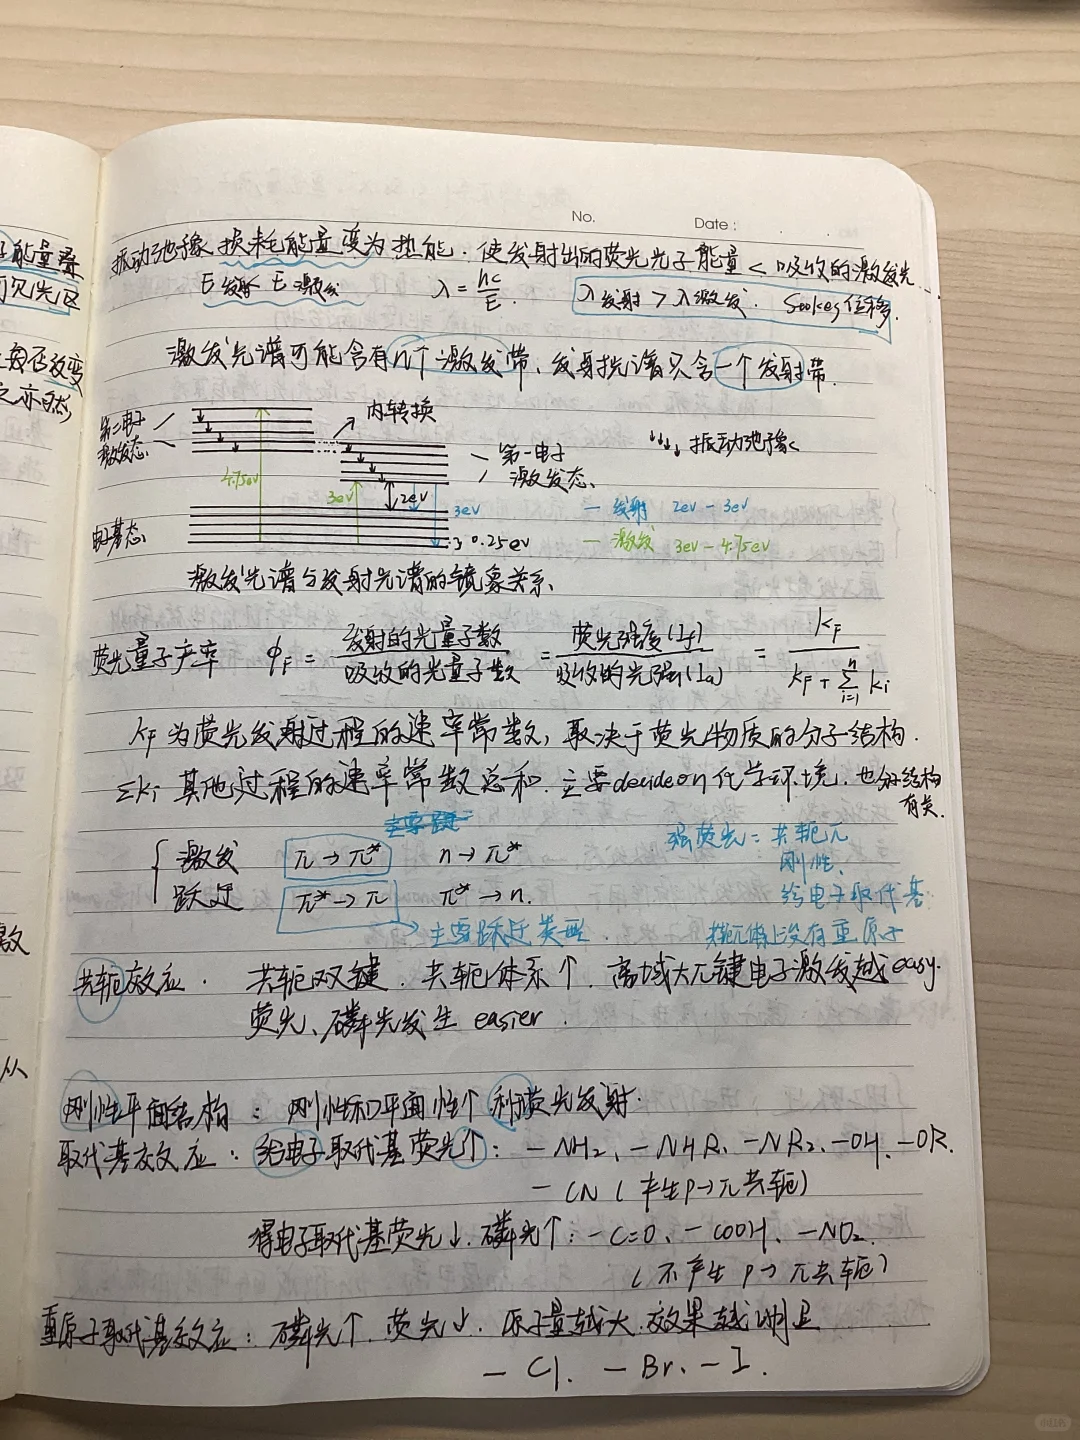 No.
Date:
能量
可见光区
改变
之亦然
振动弛豫损耗能量变为热能.使发射出的荧光光子能量<吸收的激发光
E发射 E激发 λ=hc/E. λ发射>λ激发. Sookes位移.
激发光谱可能含有n个激发带、发射光谱只含一个发射带.
第二电子激发态. 内转换 ↓↓↓↓振动弛豫
第一电子激发态.
4.75eV 3eV 2eV 3eV
— 发射 2eV-3eV
电子基态. 0.25eV — 激发 3eV-4.75eV
激发光谱与发射光谱的镜象关系.
荧光量子产率 ϕF = 发射的光量子数/吸收的光量子数 = 荧光强度(If)/吸收的光强(Ia) = kF/(kF+∑(i=1→n)ki)
kF为荧光发射过程的速率常数,取决于荧光物质的分子结构.
∑ki 其他过程的速率常数总和.主要decideon化学环境,也与结构有关.
激发 π→π* n→π*
跃迁 π*→π π*→n.
主要跃迁类型.
强荧光: 共轭π
刚性.
给电子取代基
共轭体上没有重原子
共轭效应. 共轭双键.共轭体系↑,离域大π键电子激发越easy.
荧光、磷光发生 easier.
刚性平面结构:刚性和平面性↑利于荧光发射.
取代基效应:给电子取代基荧光↑:-NH₂、-NHR、-NR₂、-OH、-OR.
-CN(产生p→π共轭)
得电子取代基荧光↓.磷光↑:-C=O、-COOH、-NO₂.
(不产生p→π共轭)
重原子取代基效应:磷光↑.荧光↓.原子量越大.效果越明显
-Cl. -Br. -I.
从
小红书